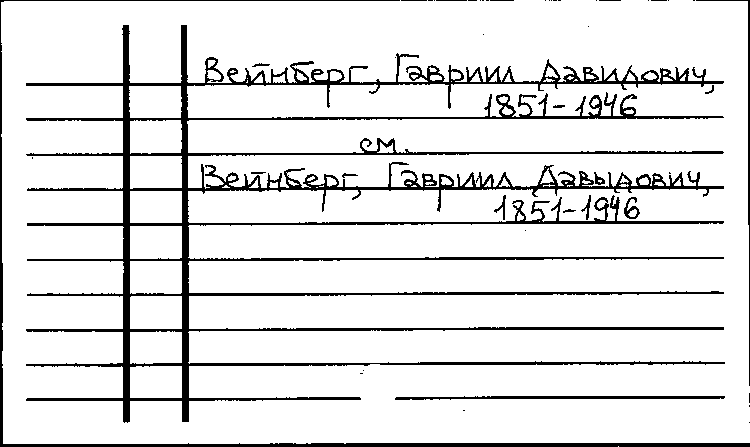 Вейнберг, Гавриил Давидович,
1851-1946
см.
Вейнберг, Гавриил Давыдович,
1851-1946